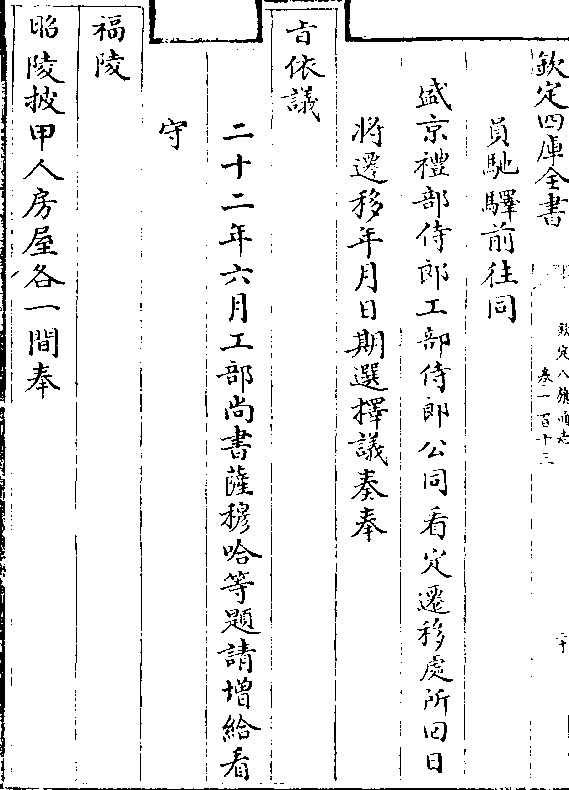 欽定四庫全書
欽定八旗通志
卷一百十三
員馳驛前往同
盛京禮部侍郎工部侍郎公同看定遷移處所回日
將遷移年月日期選擇議奏奉
旨依議
二十二年六月工部尚書薩穆哈等題請增給看
守
福陵
昭陵披甲人房屋各一間奉